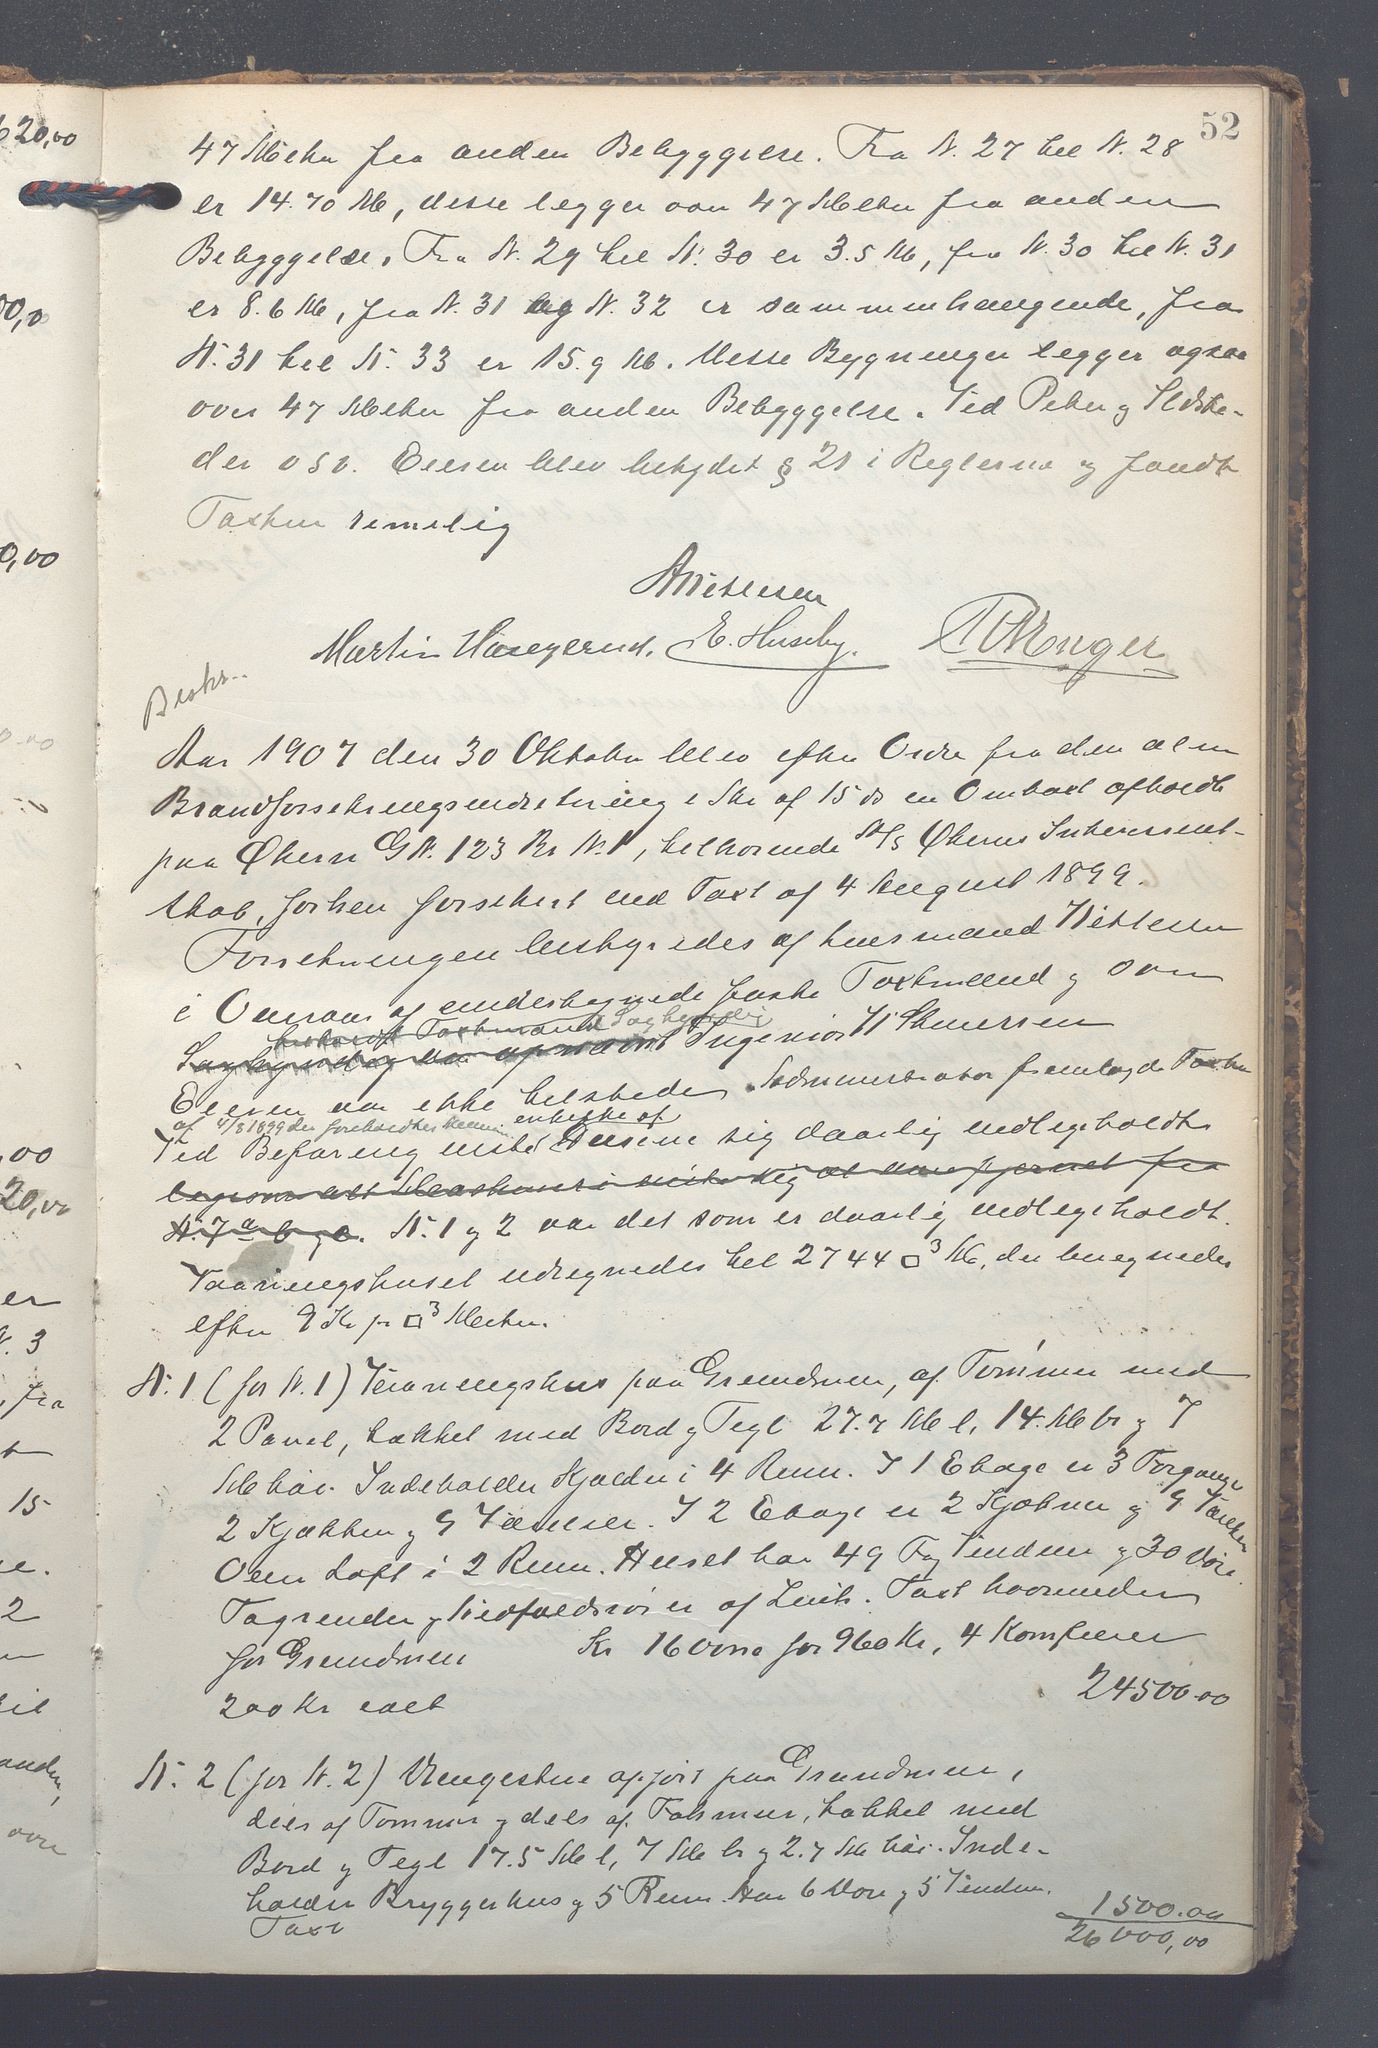 52
47 Meter fra anden Bebyggelse. Fra N. 27 til N. 28
er 14.70 M, disse legger over 47 Meter fra anden
Bebyggelse, Fra N. 29 til N. 30 er 3.5 M, fra N. 30 til N. 31
er 8.6 M, fra N. 31 og N. 32 er sammenhængende, fra
N. 31 til N. 33 er 15.9 M. Disse Bygninger legger ogsaa
over 47 Meter fra anden Bebyggelse. Ved Peber og Ildste-
der osv. Eieren blev betydet § 21 i Reglerne og fandt
Taxten rimelig
A Nielsen
Martin Haugerud. E. Huseby.
Beskr..
Aar 1907 den 30 Oktober blev efter Ordre fra den alm
Brandforsikringsindretning i Skr af 15 ds en Omtaxt afholdt
paa Økern GN. 123 Br N. 1, tilhørende A/S Økerns Interessent-
skab, forhen forsikret ved Taxt af 4 August 1899.
Forretningen bestyredes af Lensmand Nielsen
i Overvær af undertegnede faste Taxtmænd og som
Sagkyndig
Ingeniør
Eieren var ikke tilstede. Administrator fremlagde Taxten
af 4/8 1899 der foreholdtes enkelte af
Ved Befaring viste Husene sig daarlig vedligeholdt
N. 7 a b og c. N. 1 og 2 var det som er daarlig vedligeholdt.
Vaaningshuset udregnedes til 2744 □³ M, der beregnedes
efter 9 Kr pr □³ Meter.
N. 1 (før N. 1) Vaaningshus paa Grundmur, af Tømmer med
2 Panel, tækket med Bord og Tegl 27.7 M l, 14. M br og 7
M høi. Indeholder Kjælder i 4 Rum. I 1 Etage er 3 Forgange
2 Kjøkken og 9 Værelser. I 2 Etage er 2 Kjøkken og 9 Værelser
Oven Loft i 2 Rum. Huset har 49 Fag Vinduer og 30 Døre.
Tagrender og Nedfaldsrør er af Zink. Taxt hvorunder
for Grundmur Kr 16 Ovne for 960 Kr, 4 Komfurer
200 Kr ialt 24500.00
N. 2 (før N. 2) Drengestue opført paa Grundmur,
dels af Tømmer og dels af Fakmur, tækket med
Bord og Tegl 17.5 M l, 7 M br og 2.7 M høi. Inde-
holder Bryggerhus og 5 Rum. Har 6 Døre og 5 Vinduer.
Taxt 1500.00
26000,00